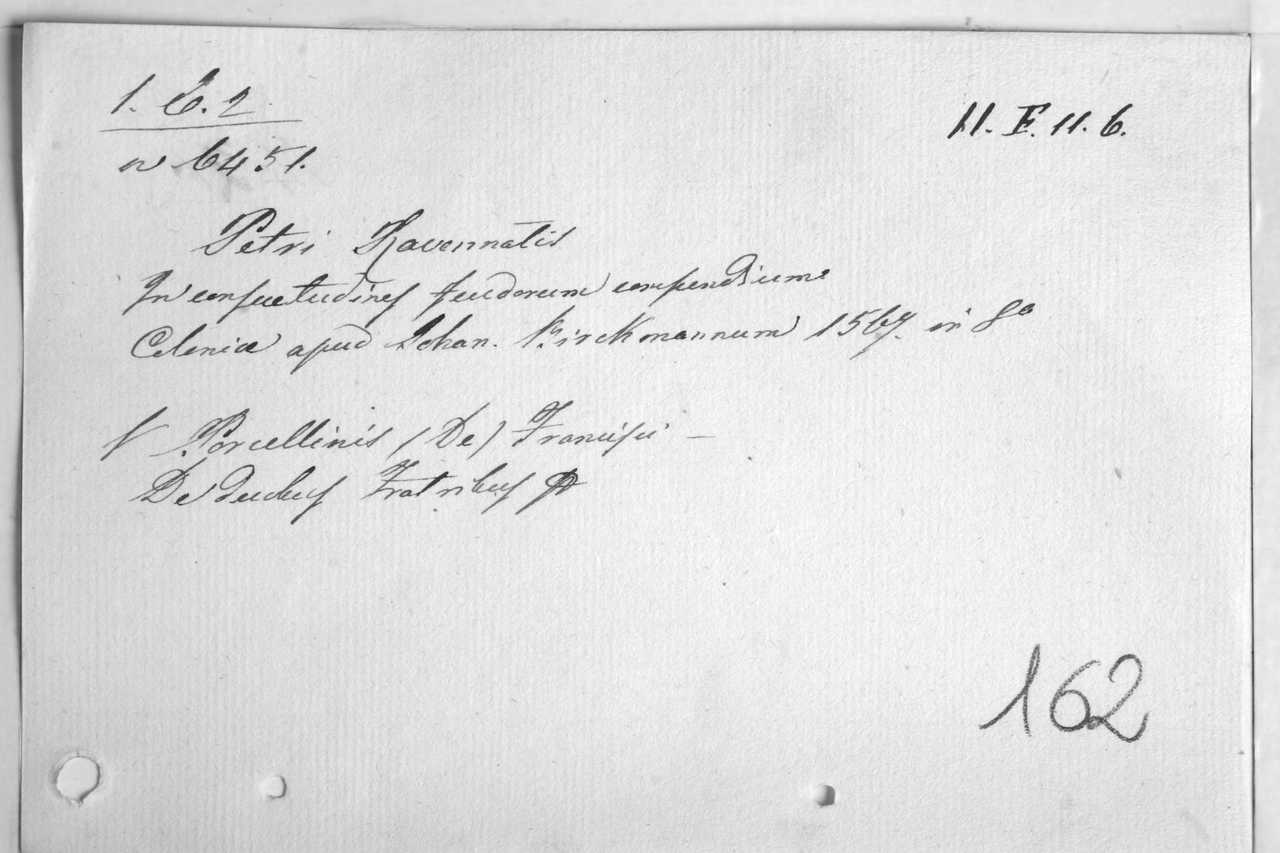 1. E. 2
11. F. 11. 6.
n 6451.
Petri Ravennatis
In consuetudines feudorum compendium
Coloniæ apud Johan. Birckmannum 1567. in 8º
V Porcellinis (De) Francisci —
De duobus Fratribus
162